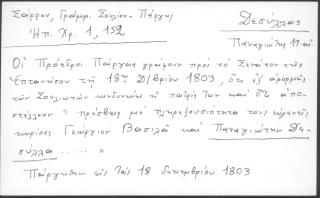 Σάρρου, Γράμμ. Σουλίου-Πάργας
Ἠπ. Χρ. 1, 152
Δεσύλλας
Παναγιώτης
Οἱ Πρόεδροι Πάργας γράφουν πρὸ τὸ Σενάτον τῆς
Ἑπτανήσου τῇ 18ῃ Δ/βρίου 1803, ὅτι ἐξ ἀφορμῆς
τῶν Σουλιωτῶν κινδυνεύει ἡ πατρίς των καὶ ὅτι ἀπο-
στέλλουν « πρέσβεις μὲ πληρεξουσιότητα τοὺς εὐγενεῖς
κυρίους Γεώργιον Βασιλᾶ καὶ Παναγιώτην Δε-
σύλλα ...... »
Πάργηθεν εἰς τὰς 18 δεκεμβρίου 1803